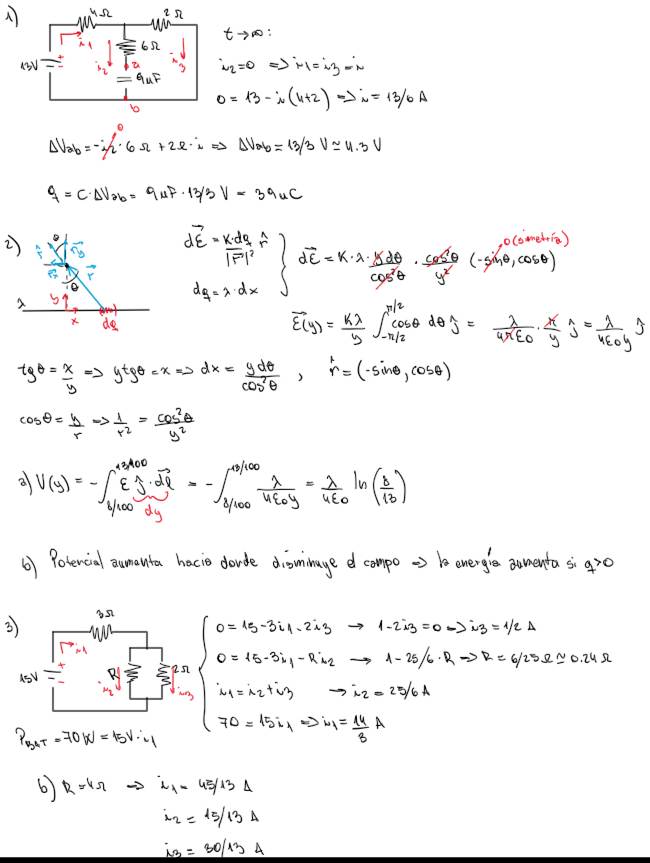 1)
4Ω 2Ω
6Ω
13V + - i₁ i₂ a i₃
9μF
b
t→∞:
i₂=0 ⟹ i₁=i₃=i
0 = 13 - i(4+2) ⟹ i = 13/6 A
ΔVab = -i₂·6Ω + 2Ω·i ⟹ ΔVab = 13/3 V ≃ 4.3 V
0
q = C·ΔVab = 9μF·13/3 V = 39μC
2)
θ r̂ r̂y r̂x r⃗ θ
λ y x dq
dE⃗ = K·dq/|r⃗|² r̂
dq = λ·dx
dE⃗ = K·λ·y dθ/cos²θ · cos²θ/y² (-sinθ, cosθ)
0 (simetría)
E⃗(y) = Kλ/y ∫_{-π/2}^{π/2} cosθ dθ ĵ = λ/4πε₀ · π/y ĵ = λ/4ε₀y ĵ
tgθ = x/y ⟹ ytgθ = x ⟹ dx = y dθ/cos²θ , r̂ = (-sinθ, cosθ)
cosθ = y/r ⟹ 1/r² = cos²θ/y²
a) V(y) = -∫_{8/100}^{13/100} E ĵ·dl⃗ = -∫_{8/100}^{13/100} λ/4ε₀y = λ/4ε₀ ln(8/13)
dy
b) Potencial aumenta hacia donde disminuye el campo ⟹ la energía aumenta si q>0
3)
3Ω
15V + - i₁ R i₂ 2Ω i₃
0 = 15-3i₁-2i₃ → 1-2i₃=0 ⟹ i₃=1/2 A
0 = 15-3i₁-Ri₂ → 1-25/6·R ⟹ R = 6/25Ω ≃ 0.24Ω
i₁=i₂+i₃ → i₂ = 25/6 A
70 = 15i₁ ⟹ i₁ = 14/3 A
P_BAT = 70W = 15V·i₁
b) R = 4Ω ⟹ i₁ = 45/13 A
i₂ = 15/13 A
i₃ = 30/13 A